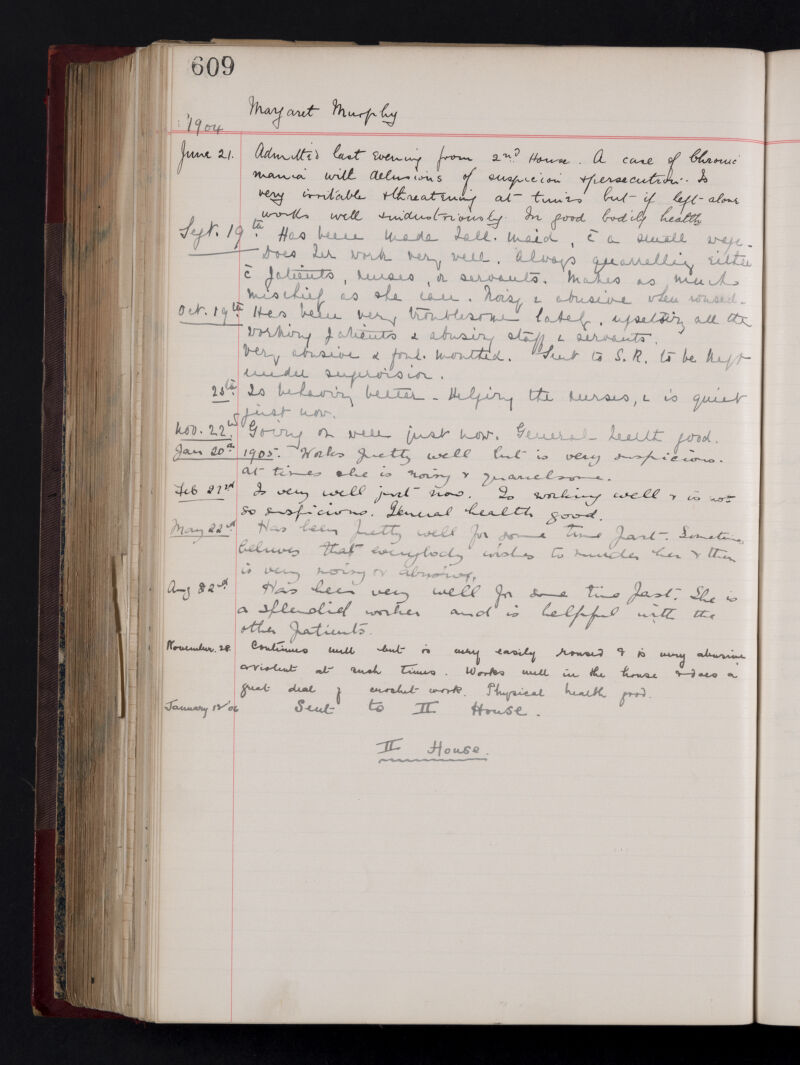 609
Margaret Murphy
1904
June 21. Admitted last evening from 2nd House. A case of Chronic
mania with delusions of suspicion & persecution. Is
very irritable & threatening at times but if left alone
works well & industriously. In good bodily health
Sept. 19th. Has been made Hall. maid, c̄ a small wage.
Does her work very well. Always quarrelling either
c̄ patients, nurses, or servants. Makes as much
mischief as she can. Noisy & abusive when roused.
Oct. 19th Has been very troublesome lately, upsetting all the
working patients & abusing staff & servants.
Very abusive & foul. mouthed. Sent to S. R. to be kept
under supervision.
28th. Is behaving better. Helping the nurses, & is quiet
just now.
Nov. 22nd Going on well just now. General health good.
Jan 20th 1905. Works pretty well but is very suspicious.
At times she is noisy & quarrelsome.
Feb 27nd Is very well just now. Is working well & is not
so suspicious. General health good.
May 22nd Has been pretty well for some time past. Sometimes
believes that everybody wishes to murder her & then
is very noisy or abusive.
Aug 22nd Has been very well for some time past. She is
a splendid worker and is helpful with the
other patients.
November. 28. Continues well but is very easily roused & is very abusive
or violent at such times. Works well in the house & does a
great deal of crochet work. Physical health good.
January 12/06 Sent to II House.
II House.